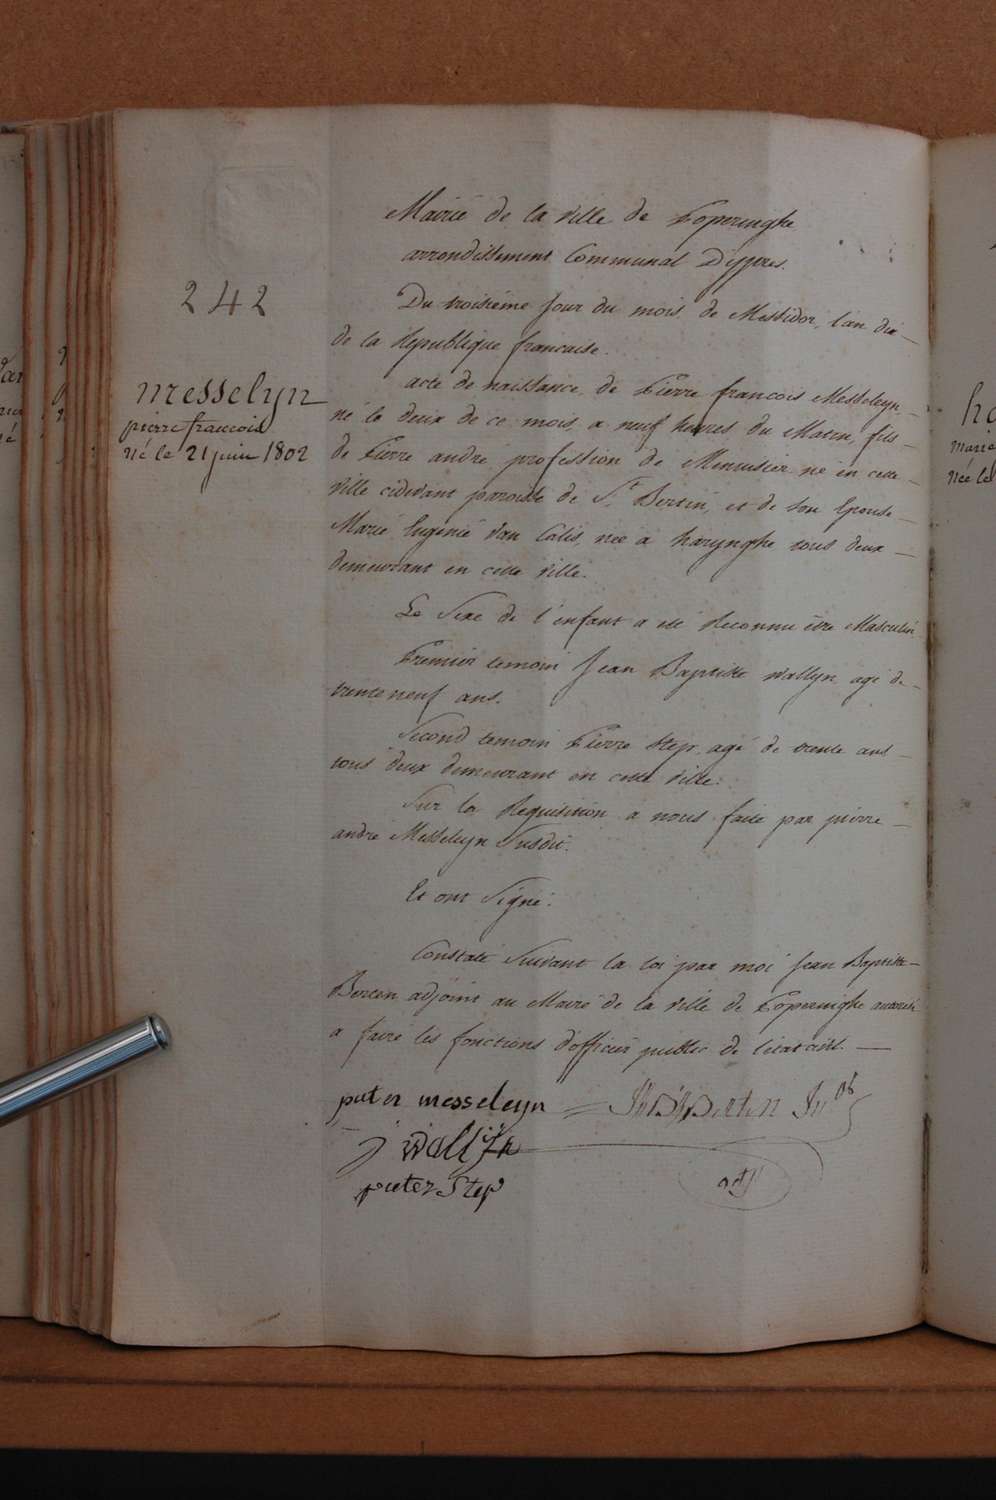 Mairie de la ville de Poperinghe
arrondissement Communal D'ypres.
242
Du troisième jour du mois de Messidor, l'an dix
de la Republique francaise.
messelyn
pierre francois
né le 21 juin 1802
acte de naissance, de Pierre francois Messeleyn,
né le deux de ce mois, a neuf heures du Matin, fils
de Pierre andre, profession de Menuisier né en cette
ville cidevant paroisse de St Bertin, et de son Epouse
Marie Eugenie Van Calis, née a harynghe tous deux
demeurant en cette ville.
Le Sexe de l'enfant a eté Reconnu être Masculin.
Premier temoin Jean Baptiste wallyn, agé de
trente neuf ans.
Second temoin Pierre Step, agé de trente ans
tous deux demeurant en cette ville.
Sur la Requisition a nous faite par pierre
andré Messeleyn Susdit.
Et ont Signé.
Constaté Suivant la loi par moi Jean Baptiste
Berten adjoint au Maire de la ville de Poperinghe autorisé
a faire les fonctions d'officier public de l'état civil.
pieter messeleyn
j wallijn
pieter Step
adjt